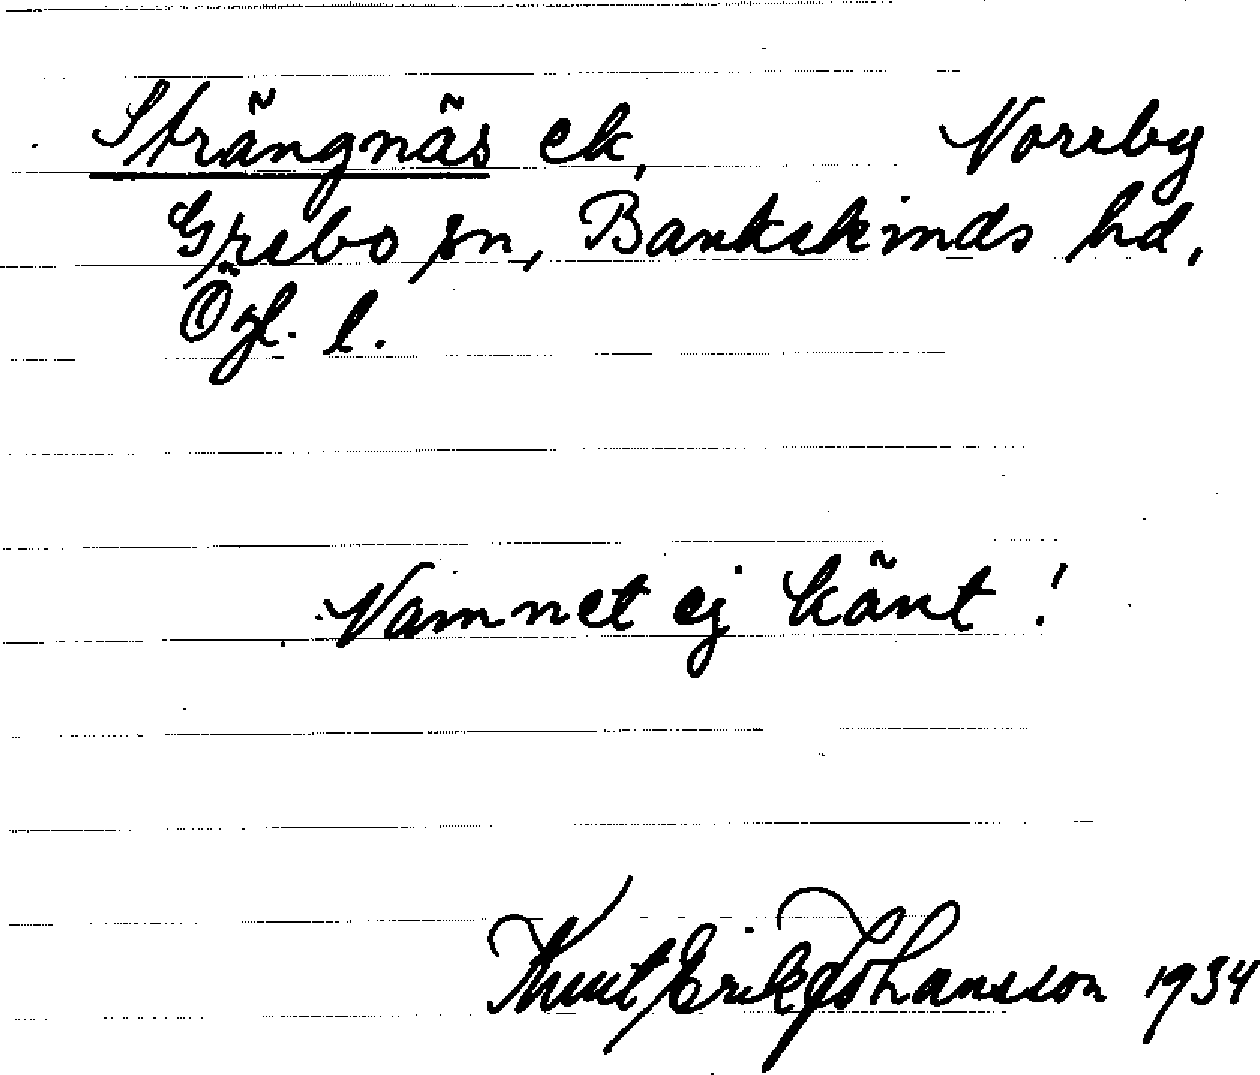 Strängnäs ek, Norrby
Grebo sn, Bankekinds hd,
Ögl. l.
Namnet ej känt!
Knut Erik Johansson 1934